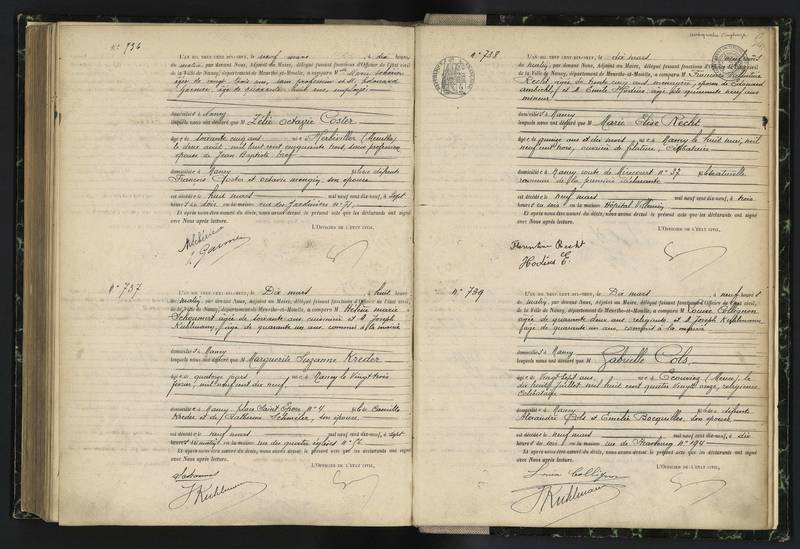 N° 736
L'AN MIL NEUF CENT DIX-NEUF, le neuf mars à dix heures
du matin, par devant Nous, Adjoint au Maire, délégué faisant fonctions d'Officier de l'état civil,
de la Ville de Nancy, département de Meurthe-et-Moselle, a comparu M
âgée de vingt trois ans, sans profession et M.
âgé de quarante huit ans, employé
domiciliés à Nancy
lesquels nous ont déclaré que M Zélie Octavie Coster
âgée de soixante cinq ans née à Herbéviller (Meurthe)
le deux août, mil huit cent cinquante trois, sans profession
épouse de Jean Baptiste
domiciliée à Nancy fille de défunts
François Coster et Octavie Mengin, son épouse
est décédée le huit mars mil neuf cent dix-neuf, à sept
heures du soir en sa maison rue des Jardiniers n° 71
Et après nous être assuré du décès, nous avons dressé le présent acte que les déclarants ont signé
avec Nous après lecture.
L'OFFICIER DE L'ÉTAT CIVIL,
N° 737
L'AN MIL NEUF CENT DIX-NEUF, le Dix mars à huit heures
du matin, par devant Nous, Adjoint au Maire, délégué faisant fonctions d'Officier de l'état civil,
de la Ville de Nancy, département de Meurthe-et-Moselle, a comparu M Hélène marie
âgée de soixante ans, cuisinière et M. Joseph
Kuhlmann, âgé de quarante un ans, commis à la mairie
domiciliés à Nancy
lesquels nous ont déclaré que M Marguerite Suzanne Kreder
âgée de quatorze jours née à Nancy le vingt trois
février, mil neuf cent dix neuf
domiciliée à Nancy, place Saint Epvre, n° 4 fille de Camille
Kreder et de Catherine Schmeler, son épouse
est décédée le neuf mars mil neuf cent dix-neuf, à sept
heures du matin en sa maison rue des quatre églises n°
Et après nous être assuré du décès, nous avons dressé le présent acte que les déclarants ont signé
avec Nous après lecture.
L'OFFICIER DE L'ÉTAT CIVIL,
J Kuhlmann
N° 738
L'AN MIL NEUF CENT DIX-NEUF, le dix mars à neuf heures
du matin, par devant Nous, Adjoint au Maire, délégué faisant fonctions d'Officier de l'état civil,
de la Ville de Nancy, département de Meurthe-et-Moselle, a comparu M Florentine
Recht, âgée de trente cinq ans ménagère, épouse de
et M. Emile Hodéus, âgé de quarante neuf ans
domiciliés à Nancy
lesquels nous ont déclaré que M Marie Elise Recht
âgée de quinze ans et dix mois née à Nancy le huit mai, mil
neuf cent trois, ouvrière de filature, Célibataire
domiciliée à Nancy route de Mirecourt n° 37 fille naturelle
de la première déclarante
est décédée le neuf mars mil neuf cent dix-neuf, à trois
heures du soir en la maison Hôpital Villemin
Et après nous être assuré du décès, nous avons dressé le présent acte que les déclarants ont signé
avec Nous après lecture.
L'OFFICIER DE L'ÉTAT CIVIL,
Florentine Recht
Hodéus E.
N° 739
L'AN MIL NEUF CENT DIX-NEUF, le Dix mars à neuf heures
du matin, par devant Nous, Adjoint au Maire, délégué faisant fonctions d'Officier de l'état civil,
de la Ville de Nancy, département de Meurthe-et-Moselle, a comparu M Louise Collignon
âgée de quarante deux ans, religieuse et M. Joseph Kuhlmann
âgé de quarante un ans, commis à la mairie
domiciliés à Nancy
lesquels nous ont déclaré que M Gabrielle Cols
âgée de vingt sept ans née à Ecouviez (Meuse), le
dix huit juillet mil huit cent quatre vingt onze, religieuse
Célibataire
domiciliée à Nancy fille de défunts
Alexandre Cols et Emélie Bocquillet, son épouse
est décédée le neuf mars mil neuf cent dix-neuf, à dix
heures du soir en sa maison rue de Strasbourg n° 194
Et après nous être assuré du décès, nous avons dressé le présent acte que les déclarants ont signé
avec Nous après lecture.
L'OFFICIER DE L'ÉTAT CIVIL,
Louise Collignon
J Kuhlmann